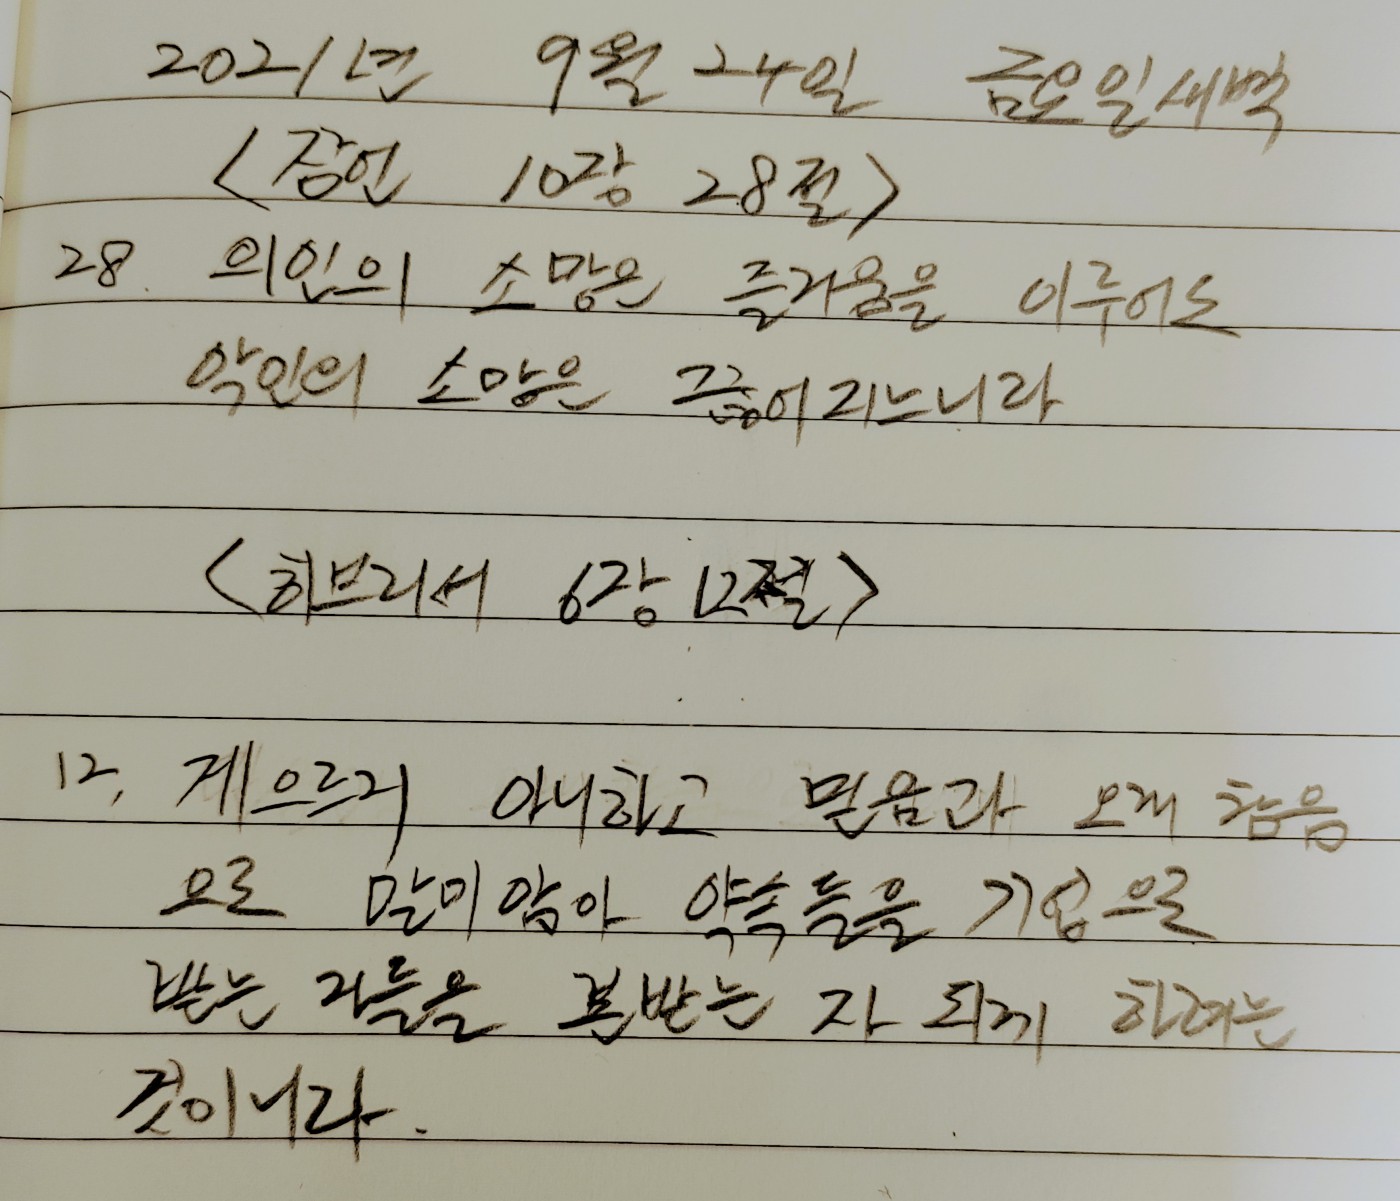 2021년 9월 24일 금요일새벽
<잠언 10장 28절>
28. 의인의 소망은 즐거움을 이루어도
악인의 소망은 끊어지느니라
<히브리서 6장 12절>
12. 게으르지 아니하고 믿음과 오래 참음
으로 말미암아 약속들을 기업으로
받는 자들을 본받는 자 되게 하려는
것이니라.